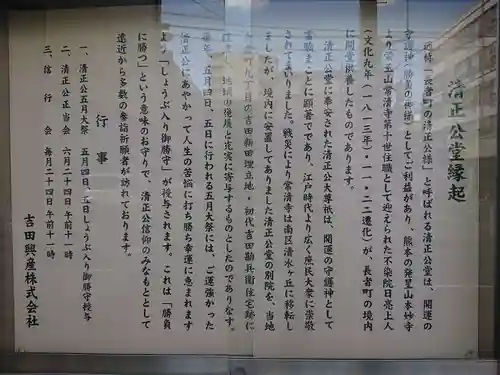 清正公堂縁起
通称「長者町の清正公様」と呼ばれる清正公堂は、開運の
守護神（勝負の神様）としてご利益があり、熊本の発星山本妙寺
より栄玉山常清寺第十世住職として迎えられた不染院日亮上人
（文化九年（一八一三年）・一一・二二遷化）が、長者町の境内
に開堂
清正公堂に奉安された清正公大尊祇は、開運の守護神として
霊験まことに顕著であり、江戸時代より広く庶民大衆に崇敬
されてまいりました。戦災により常清寺は南区清水ヶ丘に移転し
ましたが、境内に安置してありました清正公堂の別院を、当地
九丁目の吉田新田埋立地・初代吉田勘兵衛住宅跡に
地域の発展と充実に寄与するものとしたのであります。
毎年、五月四日、五日に行われる五月大祭には、ご運強かった
清正公にあやかって人生の苦悩に打ち勝ち幸運に恵まれます
よう「しょうぶ入り御勝守」が授与されます。これは「勝負
に勝つ」という意味のお守りで、清正公信仰のみなもととして
遠近から多数の参詣祈願者が訪れております。
行事
一、清正公五月大祭　五月四日、五日しょうぶ入り御勝守授与
二、清正公正当会　六月二十四日　午前十一時
三、信行会　毎月二十四日　午前十一時
吉田興産株式会社